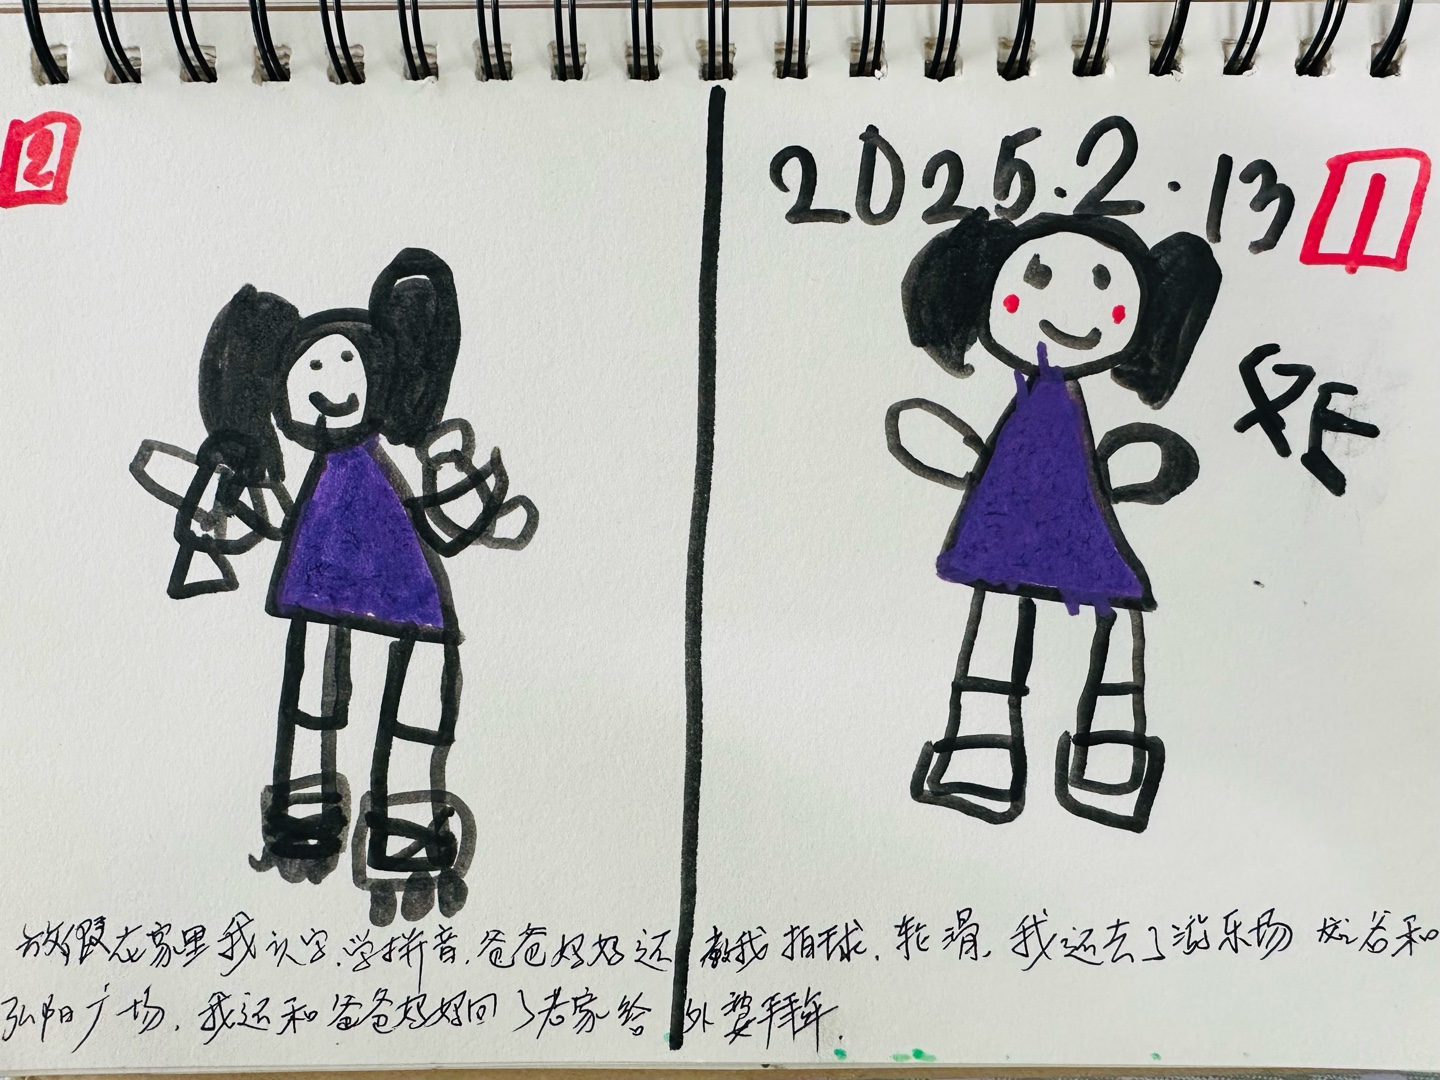 2
2025.2.13
1
放假在家里我认字.学拼音.爸爸妈妈还教我拍球.轮滑.我还去了游乐场 欢谷和
弘阳广场.我还和爸爸妈妈回了老家给外婆拜年.